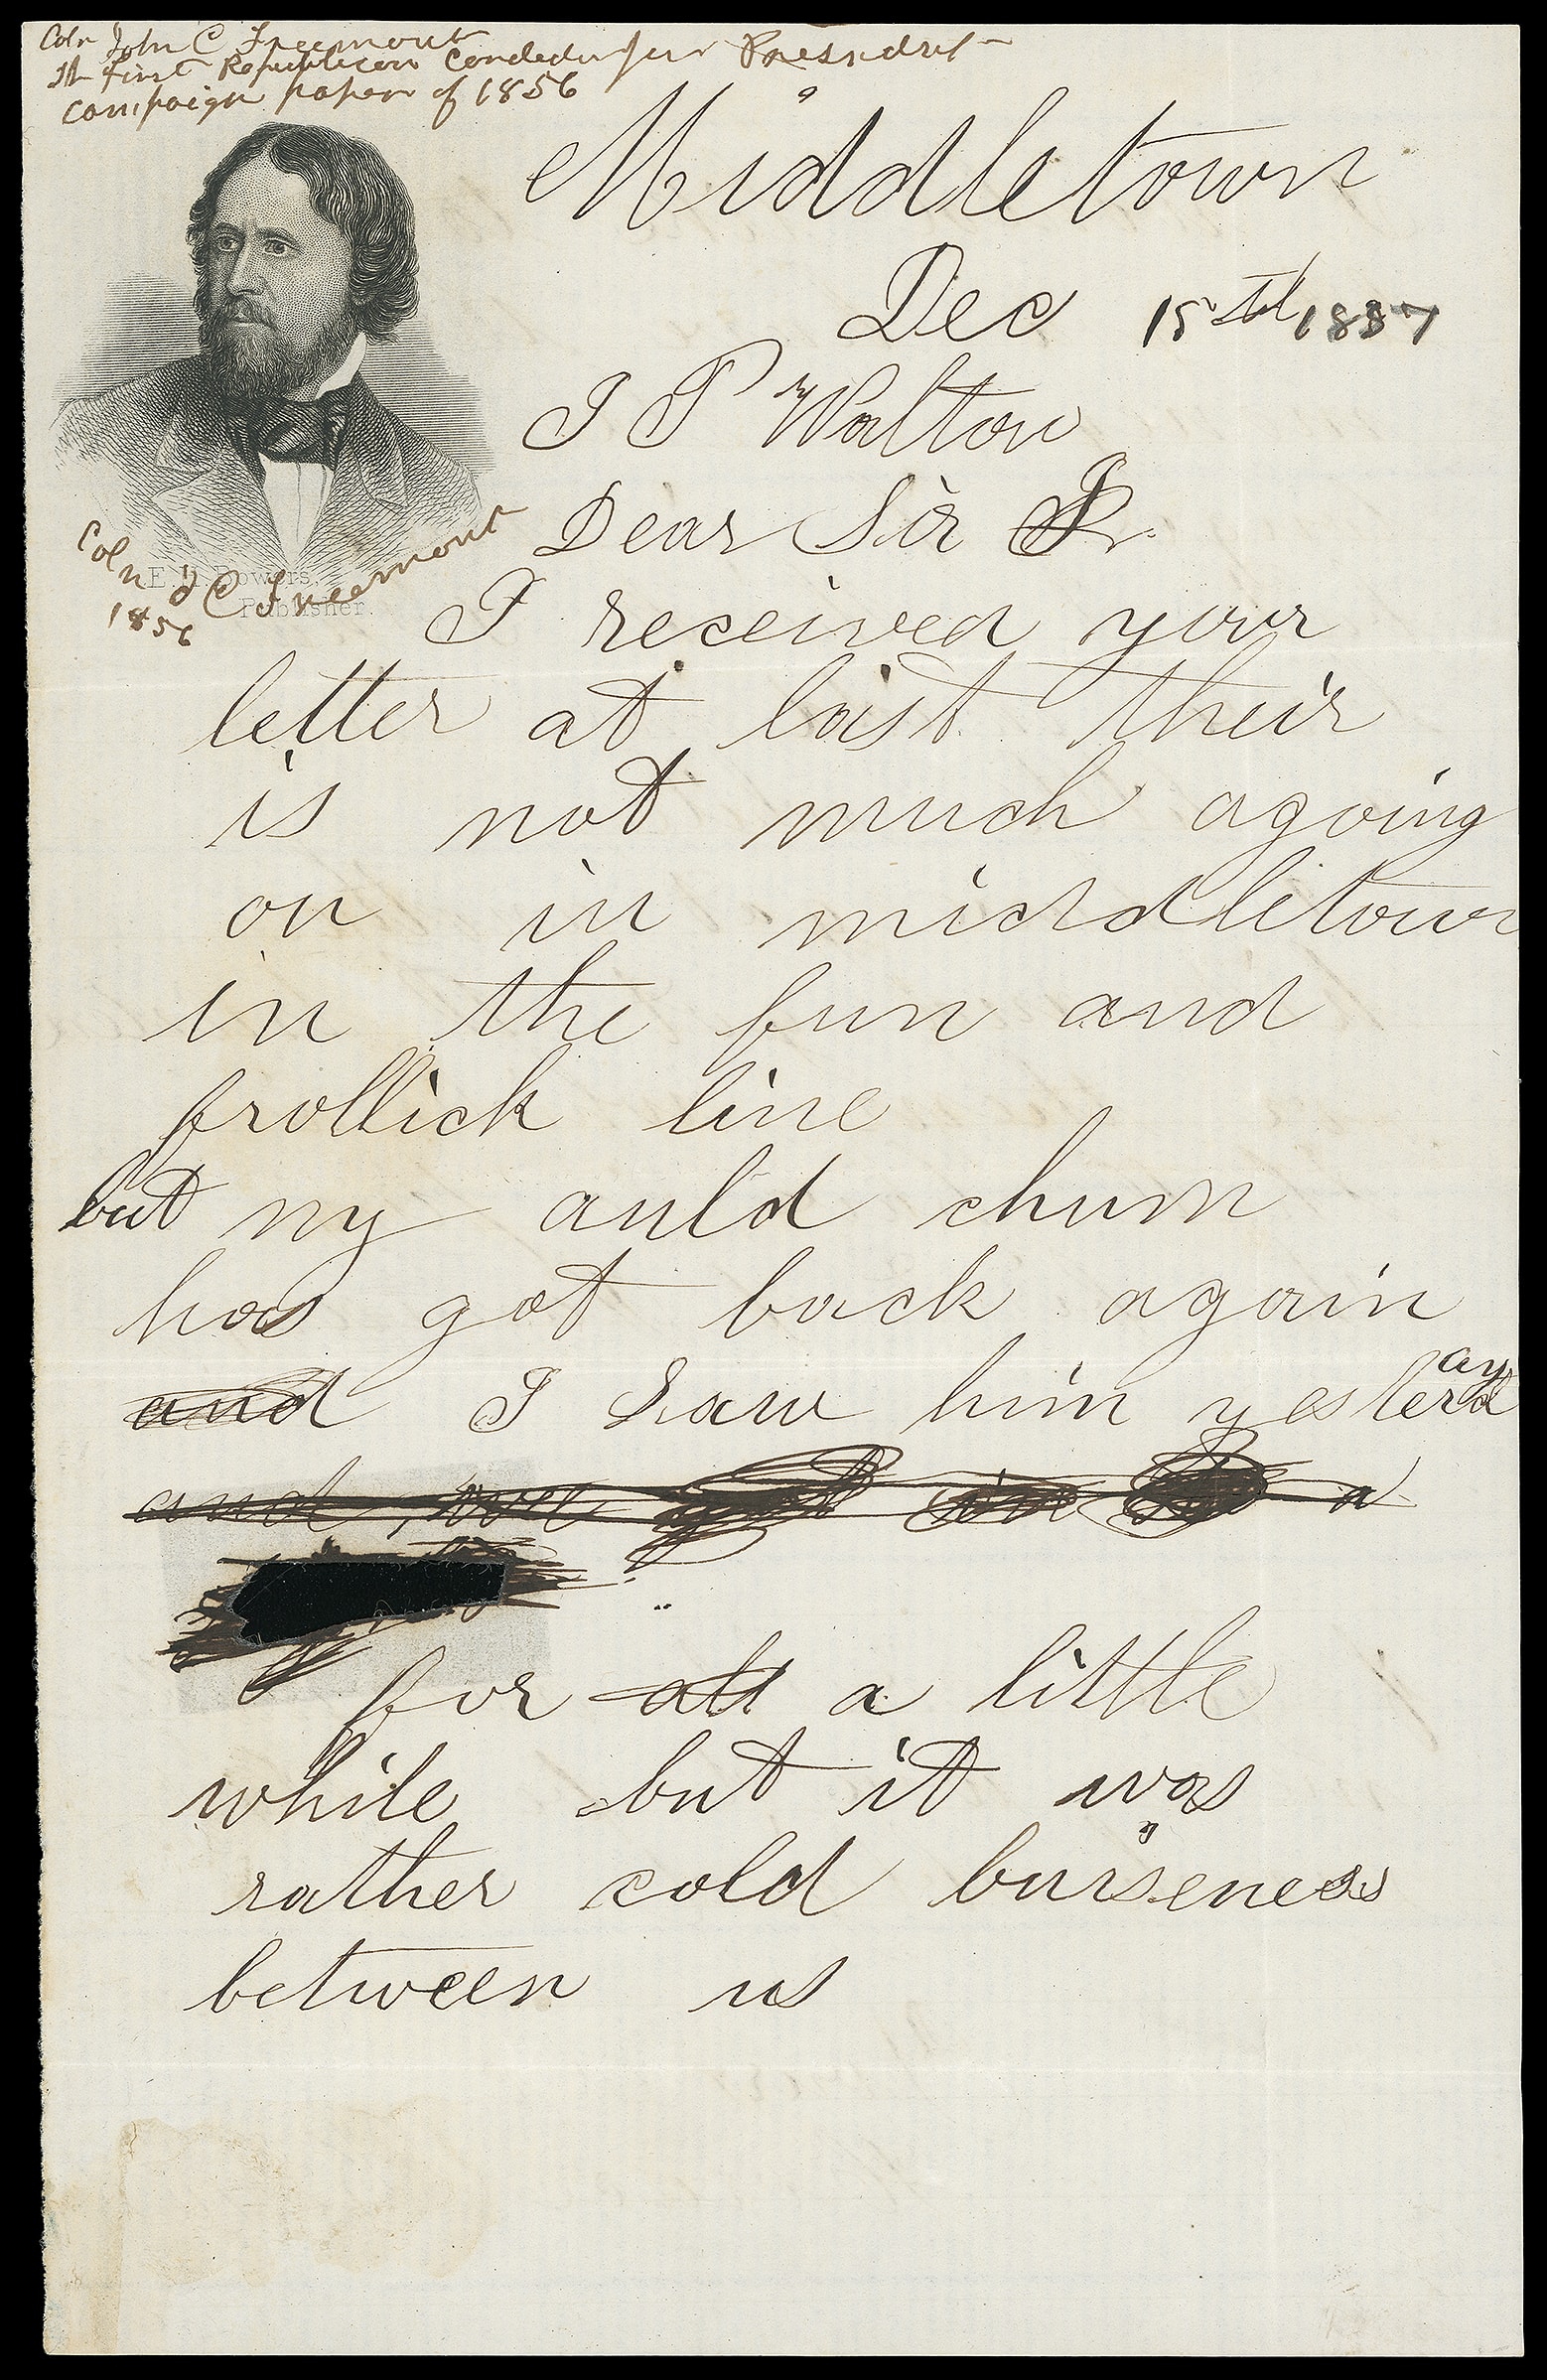 Coln John C Freemont
th first Republican Condedu for President
Campaign paper of 1856
Middletown
Dec 15th 1857
J P Walton
Dear Sir
I received your
letter at last their
is not much agoing
on in middletown
in the fun and
frollick line
but my auld chum
has got back again
and I saw him yesterday
and we got in a
for a little
while but it was
rather cold buiseness
between us
Coln J C Freemont
1856
E. H. Bowers,
Publisher.